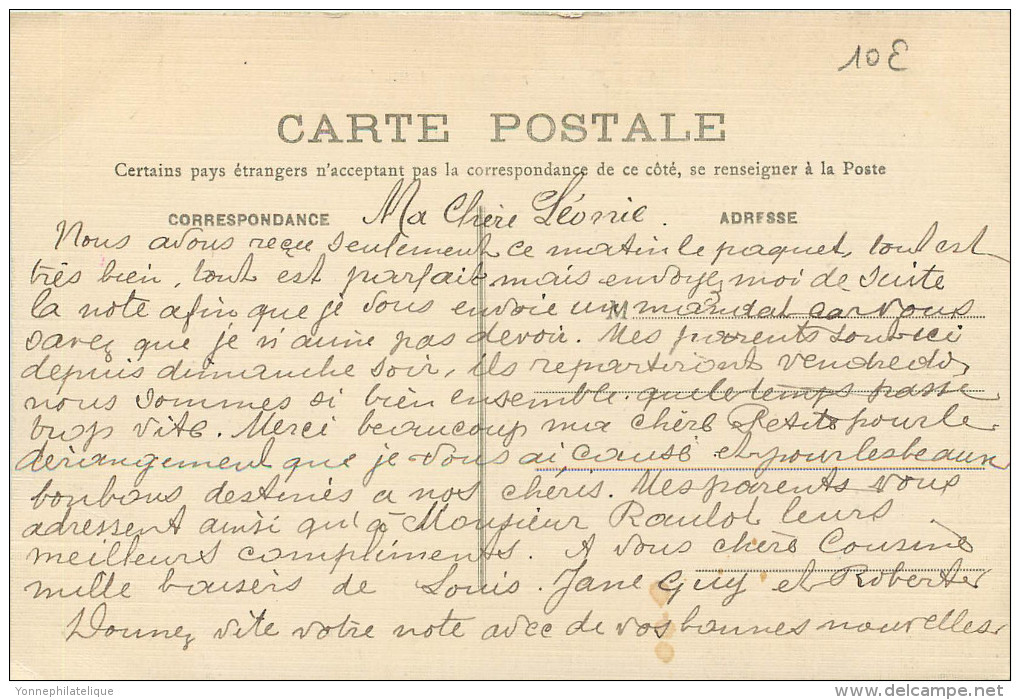 10E
CARTE POSTALE
Certains pays étrangers n'acceptant pas la correspondance de ce côté, se renseigner à la Poste
CORRESPONDANCE Ma Chère Léonie. ADRESSE
Nous avons reçu seulement ce matin le paquet, tout est
très bien, tout est parfait mais envoyez moi de suite
la note afin que je vous envoie un mandat car vous
M
savez que je n'aime pas devoir. Mes parents sont ici
depuis dimanche soir, ils repartiront vendredi,
nous sommes si bien ensemble que le temps passe
trop vite. Merci beaucoup ma chère Petite pour le
dérangement que je vous ai causé et pour les beaux
bonbons destinés a nos chéris. Mes parents vous
adressent ainsi qu'à Monsieur Raulot leurs
meilleurs compliments. A vous chère Cousine
mille baisers de Louis. Jane Guy et Roberte
Donnez vite votre note avec de vos bonnes nouvelles
Yonnephilatelique
delcampe.net